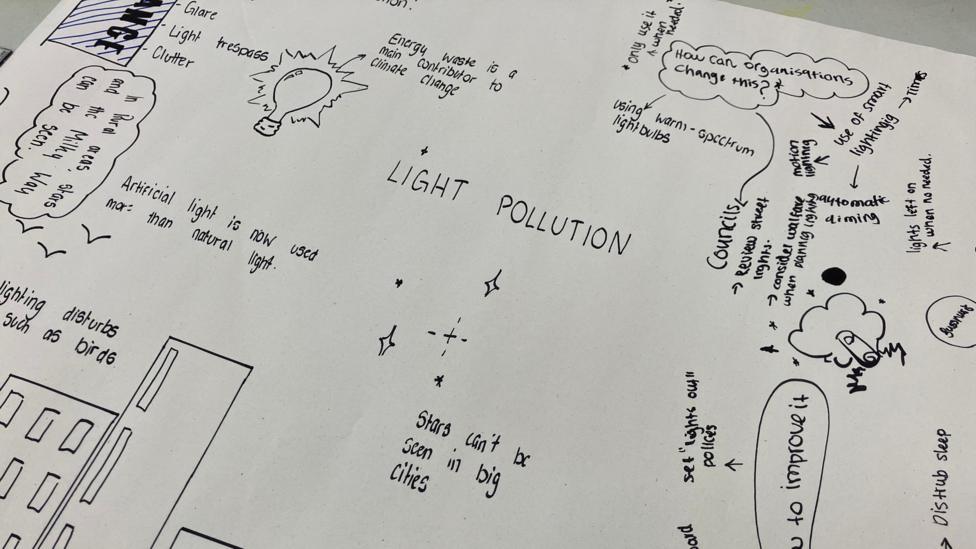 ANGE
- Glare
- Light trespass
- Clutter
Energy waste is a
main contributor to
climate change
* only use it
when needed.
How can organisations
change this?
using warm-spectrum
lightbulbs
use of smart
lightingig → times
motion
lighting
automatic
diming
lights left on
when no needed.
Councils
→ Review street
lights.
→ consider walfare
when planing lighting
In Rural areas' stars
and the Milky Way
can be seen
LIGHT POLLUTION
Artificial light is now used
more than natural light.
lighting disturbs
such as birds.
Stars can't be
seen in big
cities
set "lights out"
polices
to improve it
→ Distrub sleep